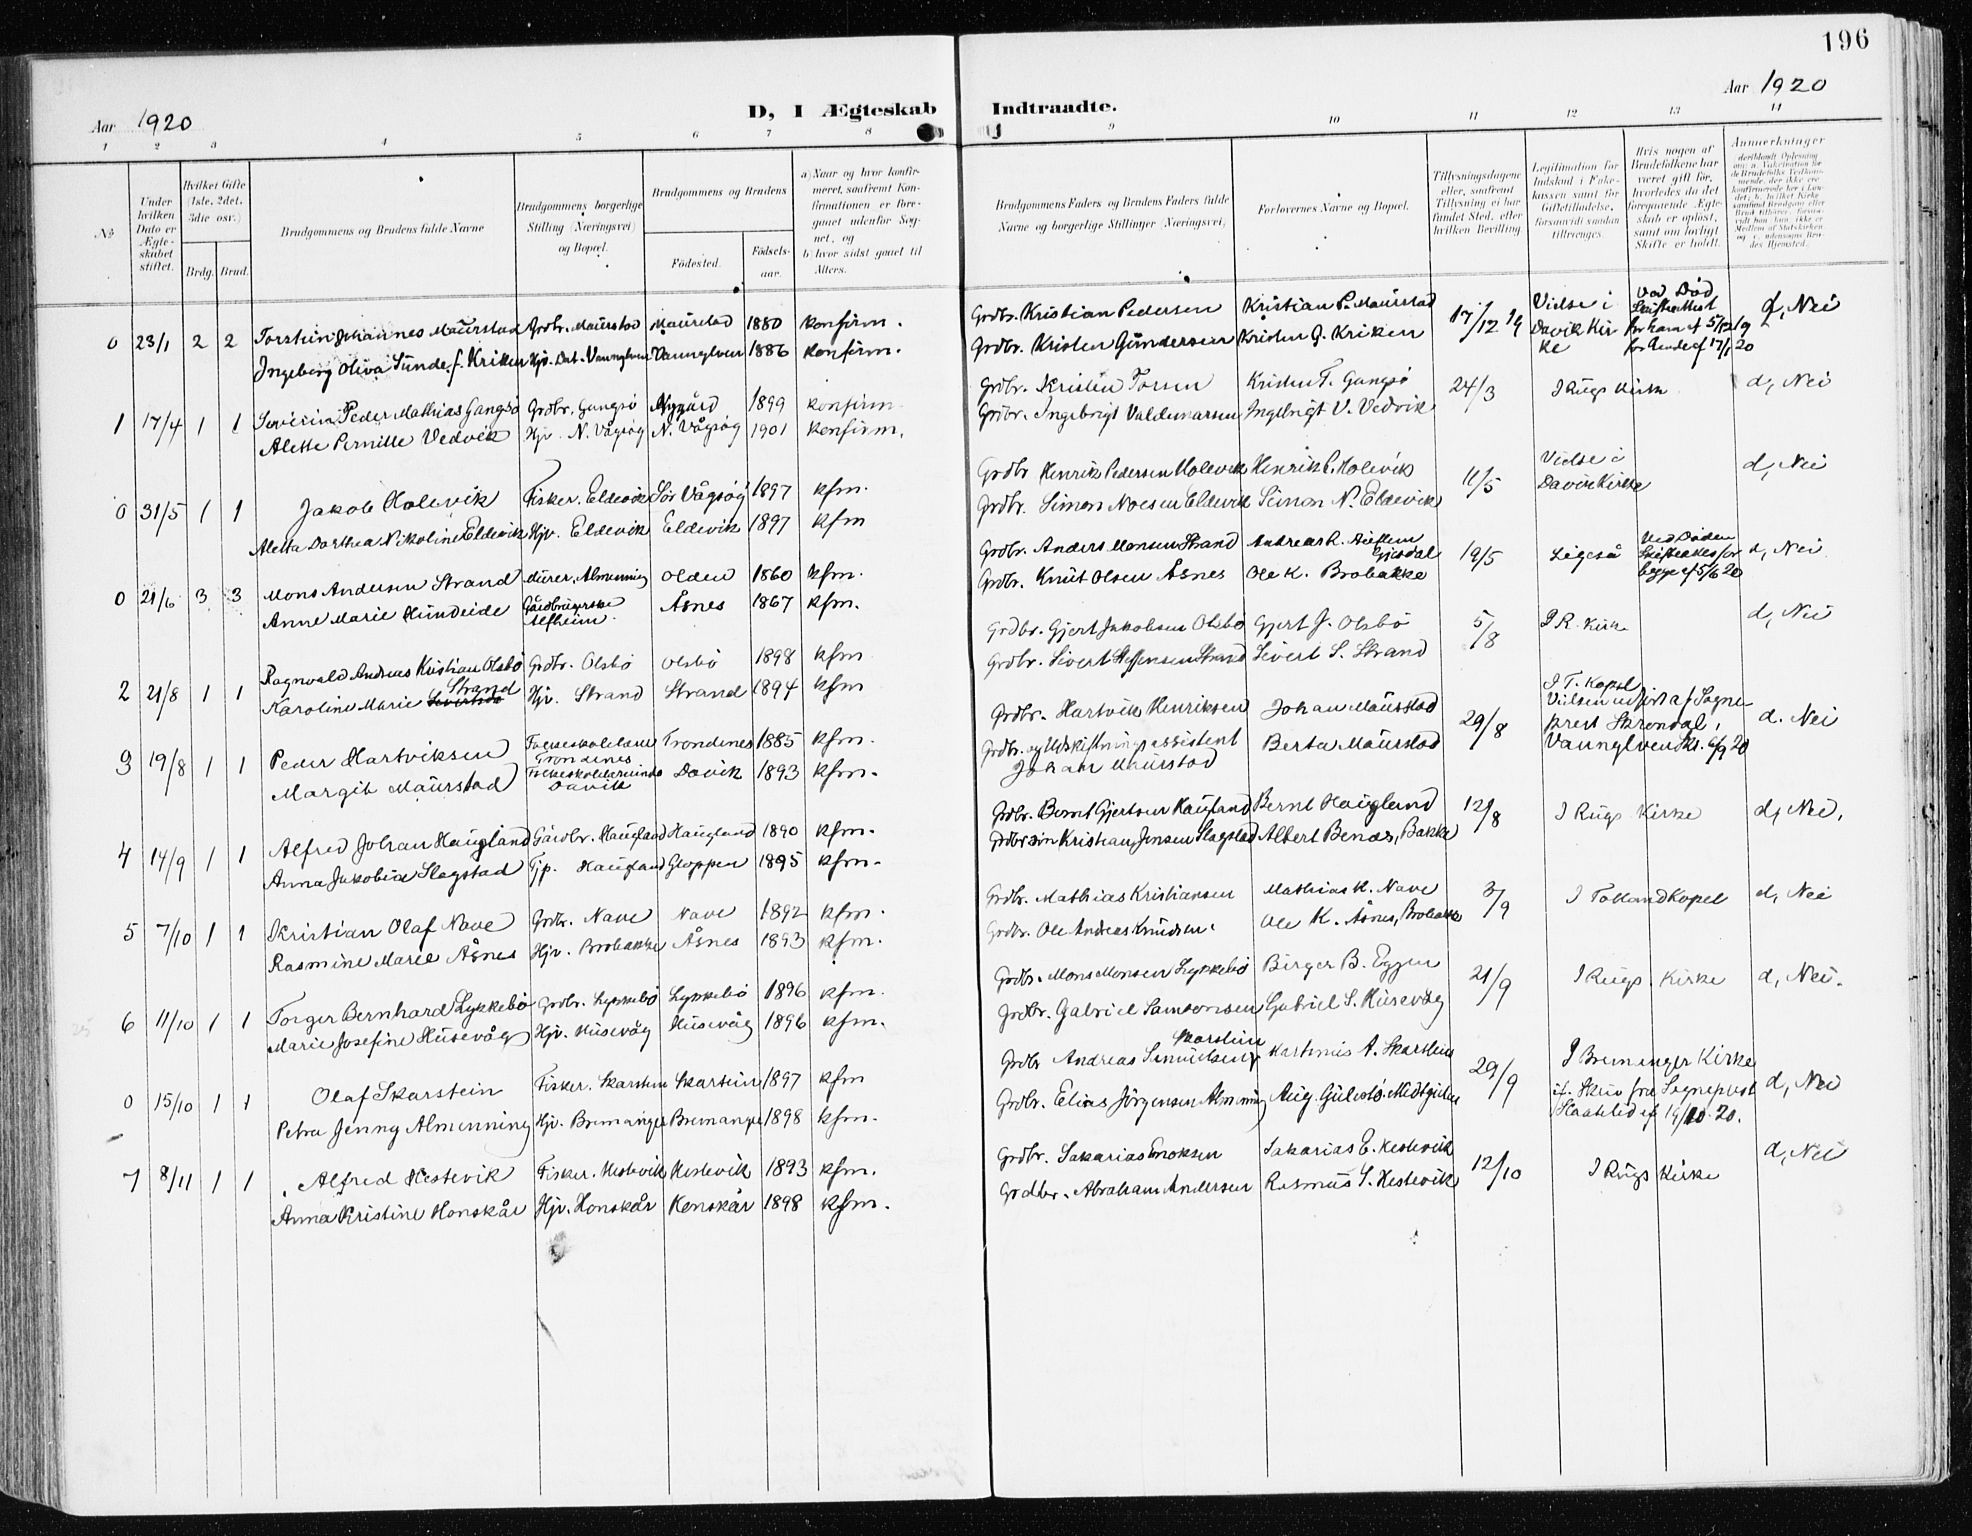 196
Aar 1920
D, I Ægteskab Indtraadte.
Aar 1920
1 2 3 4 5 6 7 8 9 10 11 12 13 14
No
Under hvilken Dato er Ægteskabet stiftet.
Hvilket Gifte (1ste, 2det, 3die osv.)
Brdg. Brud.
Brudgommens og Brudens fulde Navne
Brudgommens borgerlige Stilling (Næringsvei) og Bopæl.
Brudgommens og Brudens
Födested. Födsels-aar.
a) Naar og hvor konfirmeret, saafremt Konfirmationen er foregaaet udenfor Sognet, og
b) hvor sidst gaaet til Alters.
Brudgommens Faders og Brudens Faders fulde Navne og borgerlige Stillinger (Næringsvei)
Forlovernes Navne og Bopæl.
Tillysningsdagene eller, saafremt Tillysning ei har fundet Sted, efter hvilken Bevilling.
Legitimation for Indskud i Enkekassen samt for Giftetilladelse, forsaavidt saadan tiltrænges.
Hvis nogen af Brudefolkene har været gift før, hvorledes da det foregaaende Ægteskab er oplöst, samt om lovligt Skifte er holdt.
Anmerkninger
0 23/1 2 2 Torstein Johannes Maurstad Grdbr. Maurstad Maurstad 1880 konfirm. Grdbr. Kristian Pedersen Kristian P. Maurstad 17/12 19 Vielse i Davik Kirke Ved Död d, Nei
Ingeborg Oliva Sunde f. Kriken Hjv. Dat. Vannylven Vannylven 1886 konfirm. Grdbr. Kristen Gundersen Kristen G. Kriken
1 17/4 1 1 Severin Peder Mathias Gangsö Grdbr. Gangsö Nygård 1899 konfirm Grdbr. Kristen Torsen Kristen T. Gangsö 24/3 I Rugs Kirke d, Nei
Alette Pernille Vedvik Hjv. N. Vågsøy N. Vågsøy 1901 konfirm. Grdbr. Ingebrigt Valdemarsen Ingebrigt V. Vedvik
0 31/5 1 1 Jakob Holevik Fisker. Eldevik Sör Vågsøy 1897 kfm. Grdbr Henrik Pedersen Holevik Henrik P. Holevik 11/5 Vielse i Davik Kirke d, Nei
Aletta Dorthea Nikoline Eldevik Hjv. Eldevik Eldevik 1897 kfm Grdbr. Simon Noesen Eldevik Simon N. Eldevik
0 21/6 3 3 Mons Andersen Strand Murer, Almenning Olden 1860 kfm. Grdbr. Anders Monsen Strand Andreas R. 19/5 Ligeså Ved Döden d, Nei
Anne Marie Hundeide Alfheim. Åsnes 1867 kfm. Grdbr. Knut Olsen Åsnes Ole K. Brobakke
2 21/8 1 1 Ragnvald Andreas Kristian Olsbö Grdbr. Olsbö Olsbö 1898 kfm Grdbr. Gjert Jakobsen Olsbö Gjert J. Olsbö 5/8 I R. Kirke d, Nei
Karoline Marie Strand Hjv. Strand Strand 1894 kfm Grdbr. Sivert Steffensen Strand Sivert S. Strand
3 19/8 1 1 Peder Hartviksen Folkeskolelærer Trondenes Trondenes 1885 kfm. Grdbr. Hartvik Henriksen Johan Maurstad 29/8 I T. Kapel Vielsen udført af Sogneprest Skrondal, Vannylven Skr. 6/9 20 d. Nei
Margit Maurstad Folkeskolelærerinde Davik Davik 1893 kfm. Grdbr. og Udskiftningsassistent Johan Maurstad Berta Maurstad
4 14/9 1 1 Alfred Johan Haugland Gårdbr. Haugland Haugland 1890 kfm. Grdbr. Bernt Gjertsen Haugland Bernt Haugland 12/8 I Rugs Kirke d, Nei,
Anna Jakobine Slagstad Tjp. Haugland Gloppen 1895 kfm. Grdbr sön Kristian Jensen Slagstad Albert Benas, Bakke
5 7/10 1 1 Kristian Olaf Nave Grdbr. Nave Nave 1892 kfm. Grdbr. Mathias Kristiansen Mathias K. Nave 3/9 I Totland Kapel d, Nei
Rasmine Marie Åsnes Hjv. Brobakke Åsnes 1893 kfm. Grdbr. Ole Andreas Knudsen. Ole K. Åsnes, Brobakke
6 11/10 1 1 Torger Bernhard Lykkebö Grdbr. Lykkebö Lykkebö 1896 kfm. Grdbr. Mons Monsen Lykkebö Birger B. Eggen 21/9 I Rugs. Kirke d, Nei.
Marie Josefine Husevåg Hjv. Husevåg Husevåg 1896 kfm. Grdbr. Gabriel Samsonsen Gabriel S. Husevåg
0 15/10 1 1 Olaf Skarstein Fisker. Skarstein Skarstein 1897 kfm Grdbr Andreas Samuelsen Skarstein Martinus A. Skarstein 29/9 I Bremanger Kirke d, Nei
Petra Jenny Almenning Hjv. Bremanger Bremanger 1898 kfm. Grdbr. Elias Jörgensen Almenning Aug. Gulesö. Midtgulen
7 8/11 1 1 Alfred Hestevik Fisker. Hestevik Hestevik 1893 kfm. Grdbr. Sakarias Enoksen Sakarias E. Hestevik 12/10 I Rugs Kirke d, Nei
Anna Kristine Honskår Hjv. Honskår Honskår 1898 kfm. Grdbr. Abraham Andersen Rasmus S. Hestevik